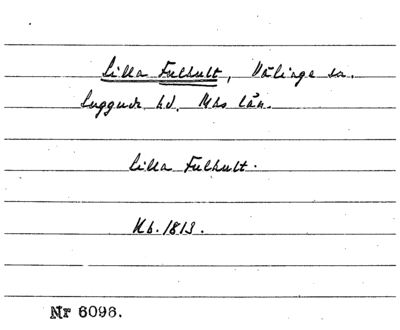 Lilla Fulhult, Välinge sn.
Luggude hd. Mhs län.
Lilla Fulhult.
Kb. 1813.
Nr 6098.